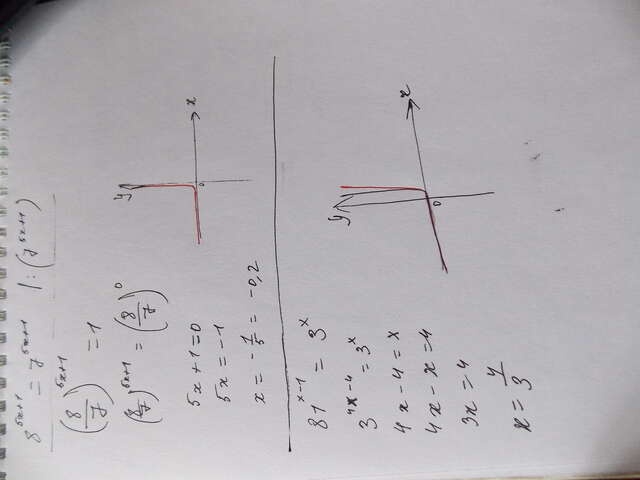 8^{5x+1} = 7^{5x+1} |:(7^{5x+1})
(8/7)^{5x+1} = 1
(8/7)^{5x+1} = (8/7)^0
y
x
0
5x+1=0
5x=-1
x=-1/5=-0,2
81^{x-1} = 3^x
3^{4x-4} = 3^x
y
x
0
4x-4=x
4x-x=4
3x=4
x=4/3